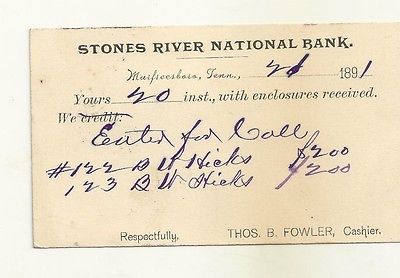 STONES RIVER NATIONAL BANK.
Murfreesboro, Tenn., 21 1891
Yours 20 inst., with enclosures received.
We credit:
Enter for Coll
#122 B W Hicks $200
123 B W Hicks $200
Respectfully, THOS. B. FOWLER, Cashier.